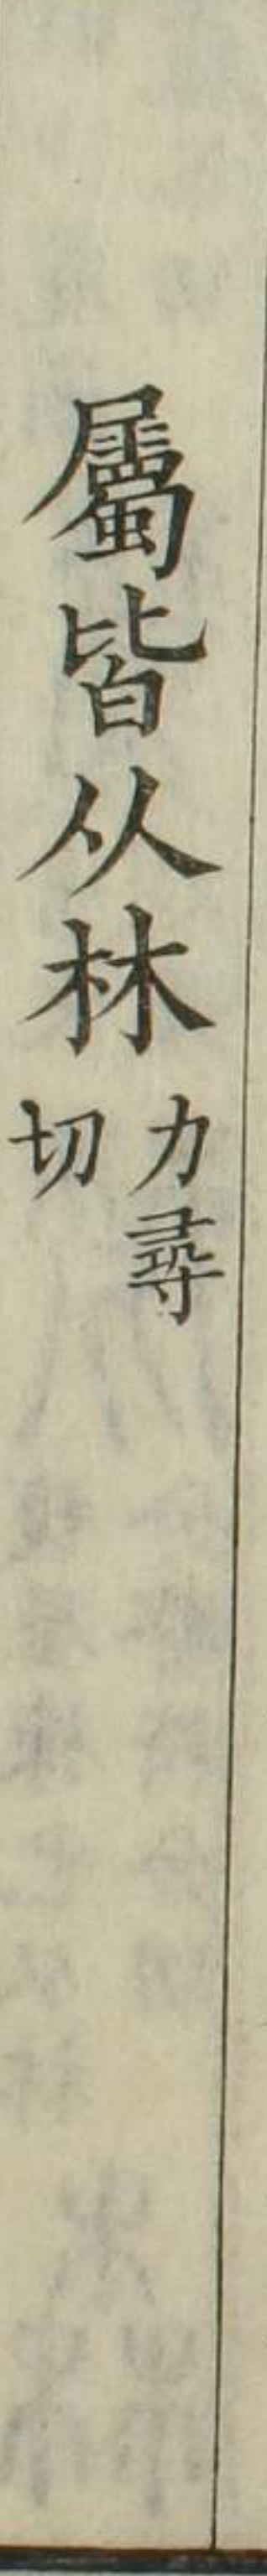 屬皆从林力尋
切